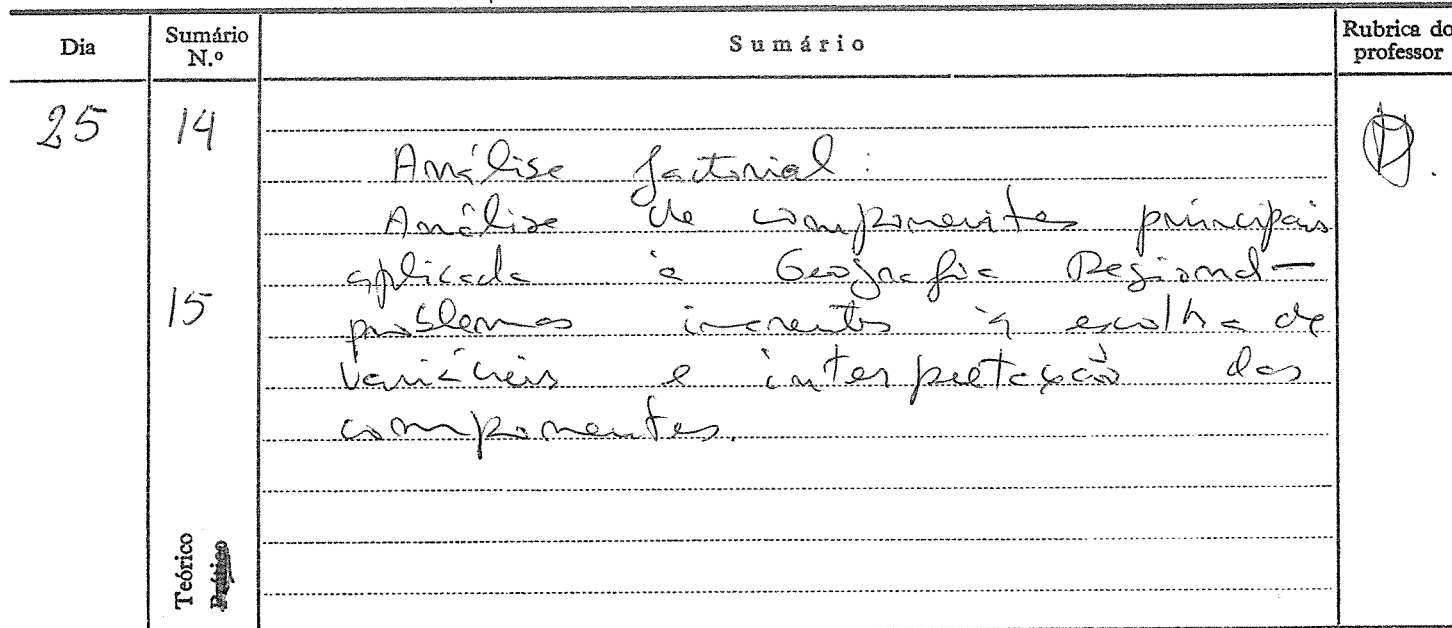 Dia Sumário N.º Sumário Rubrica do professor
25 14
Análise factorial:
Análise de componentes principais
aplicada à Geografia Regional —
15
problemas inerentes à escolha de
variáveis e interpretação das
componentes.
Teórico
Prático